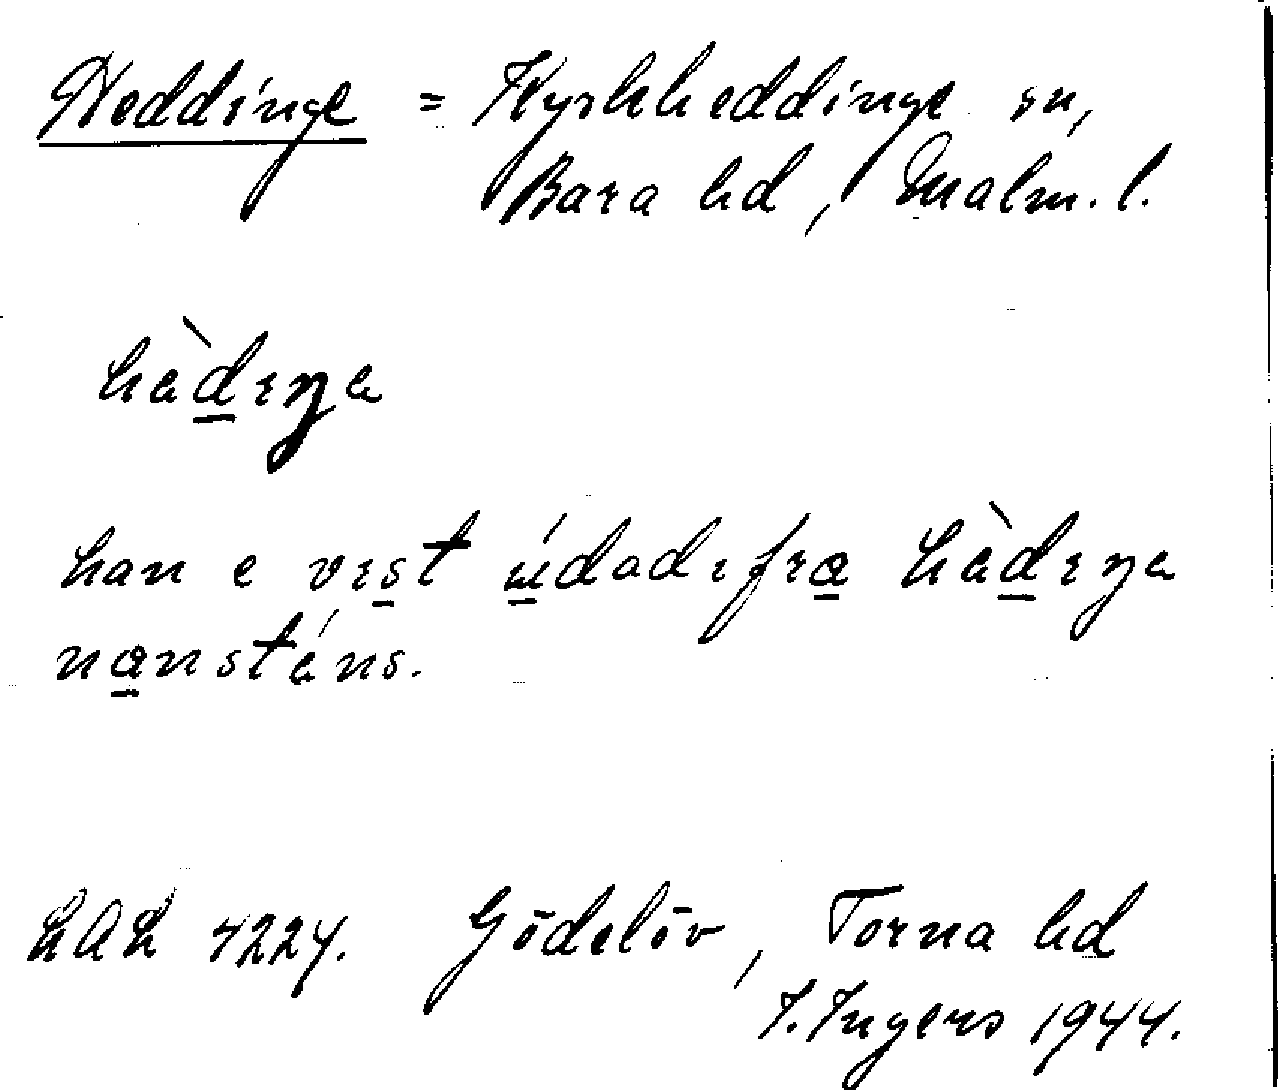 Heddinge = Kyrkheddinge sn,
Bara hd, Malm. l.
hàd̲ıŋa
han e vıs̲t ú̲dadıfra̲ hàd̲ıŋa
na̲nsténs.
LAL 4224. Gödelöv, Torna hd
I. Ingers 1944.